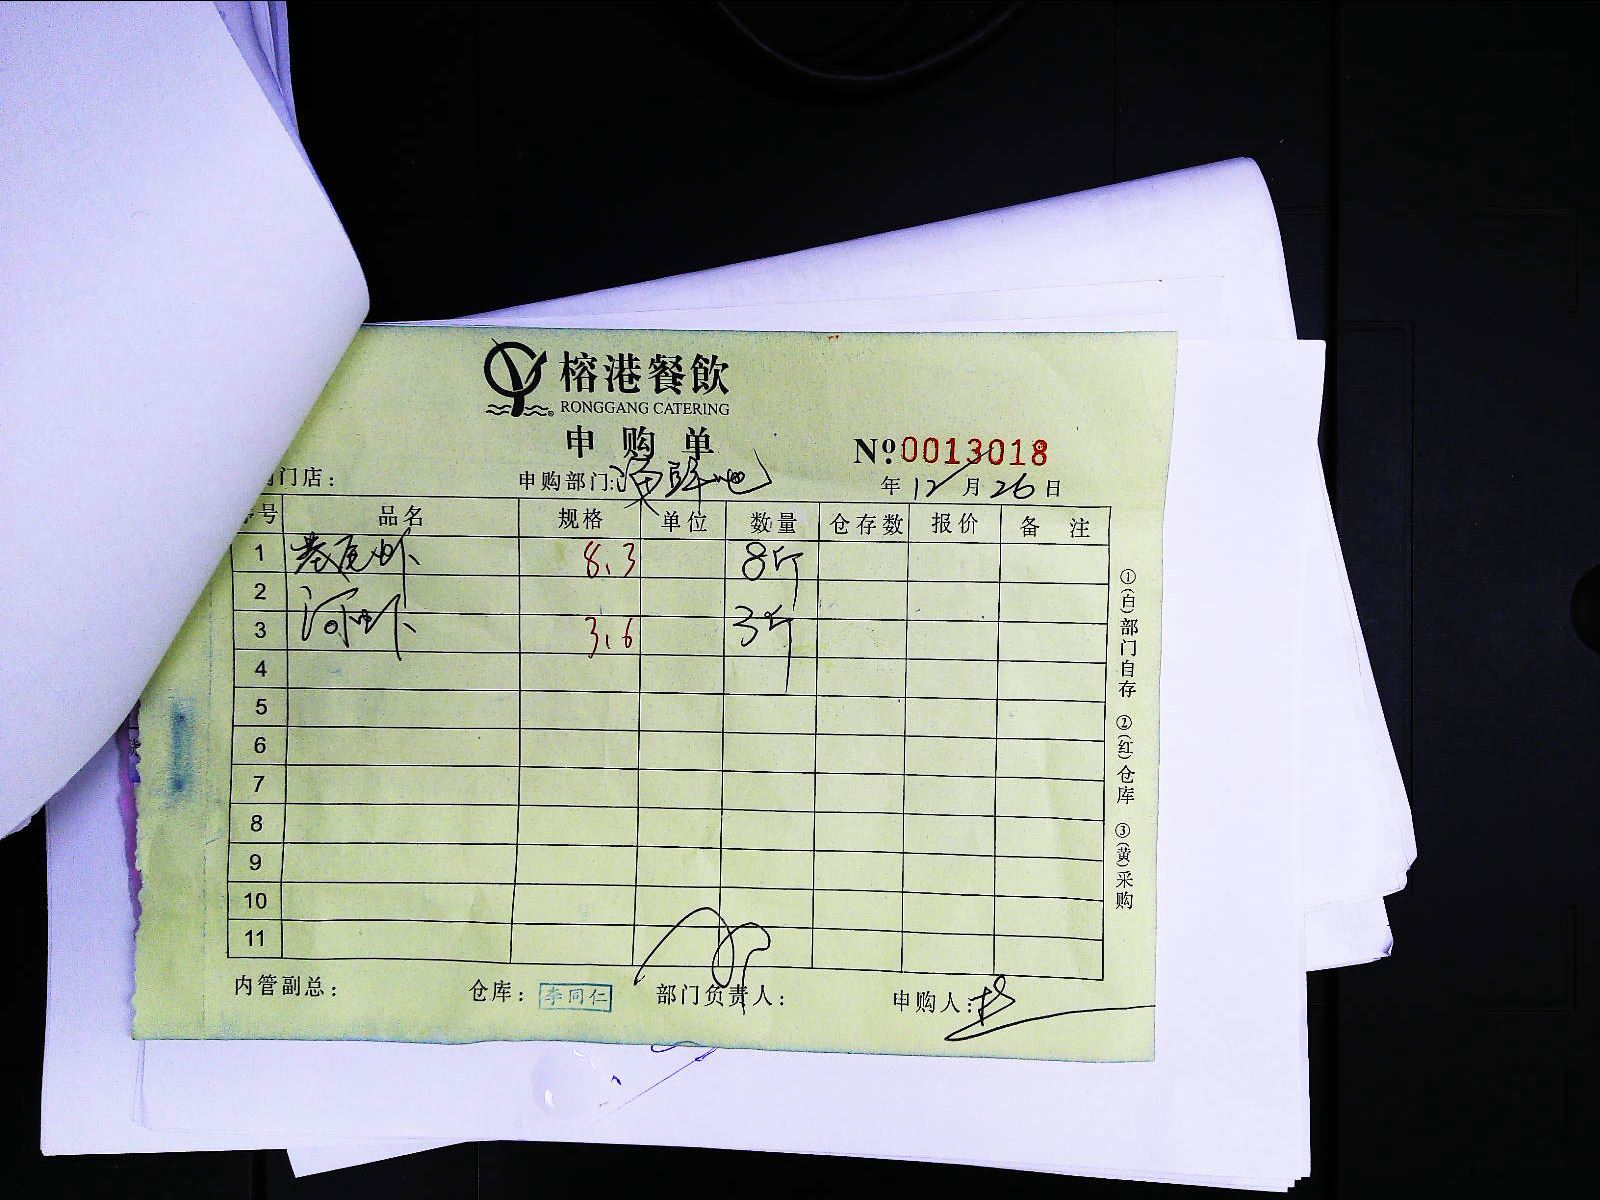 榕港餐飲
RONGGANG CATERING
申购单
№0013018
门店： 申购部门:海鲜池 年12月26日
序号 品名 规格 单位 数量 仓存数 报价 备 注
1 基尾虾 8.3 8斤
2
3 河虾 3.6 3斤
4
5
6
7
8
9
10
11
内管副总： 仓库： 李同仁 部门负责人： 申购人:
①(白)部门自存 ②(红)仓库 ③(黄)采购